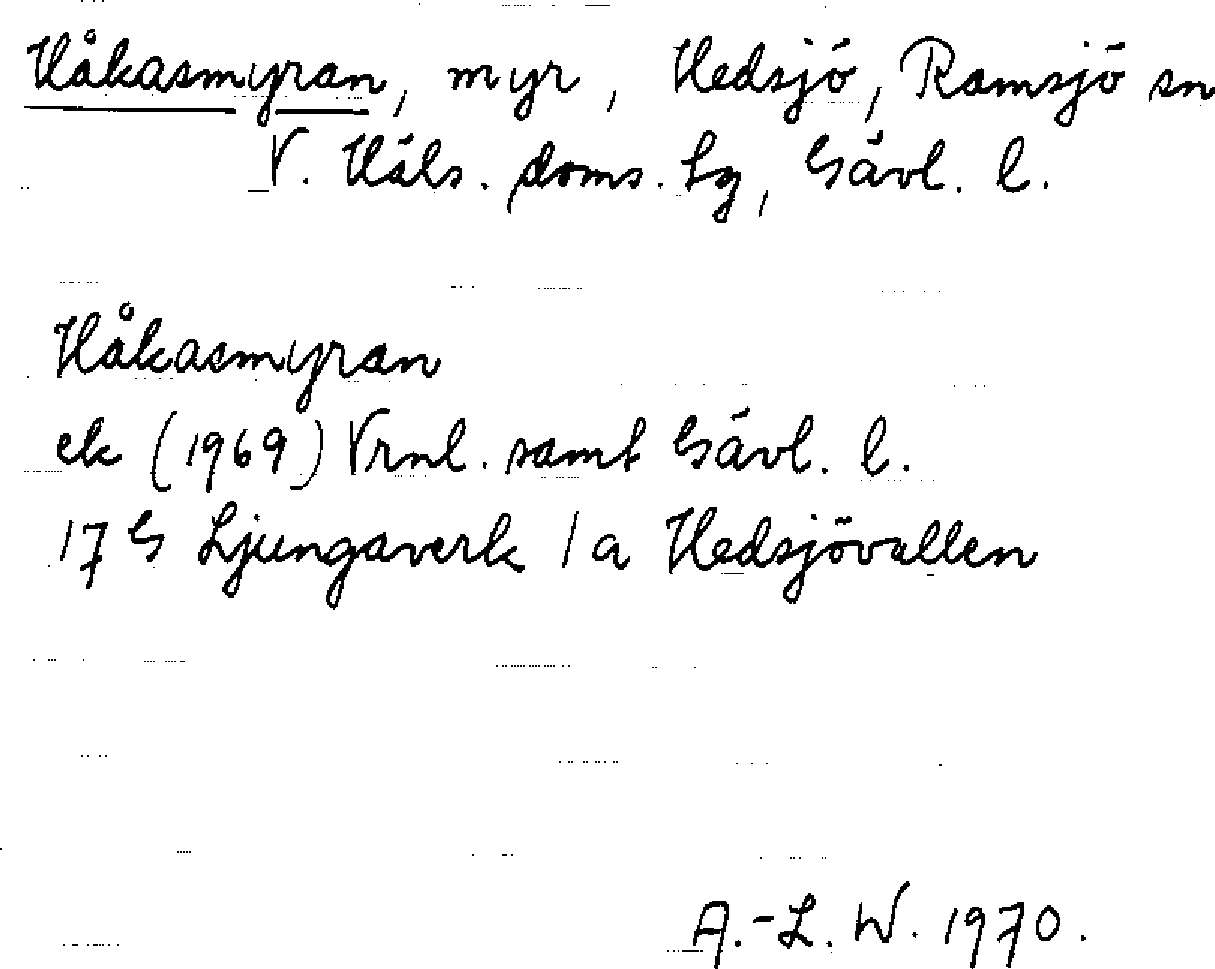 Håkasmyran, myr, Hedsjö, Ramsjö sn
V. Häls. doms. tg, Gävl. l.
Håkasmyran
ek (1969) Vrnl. samt Gävl. l.
17 G Ljungaverk 1 a Hedsjövallen
A.-L. W. 1970.